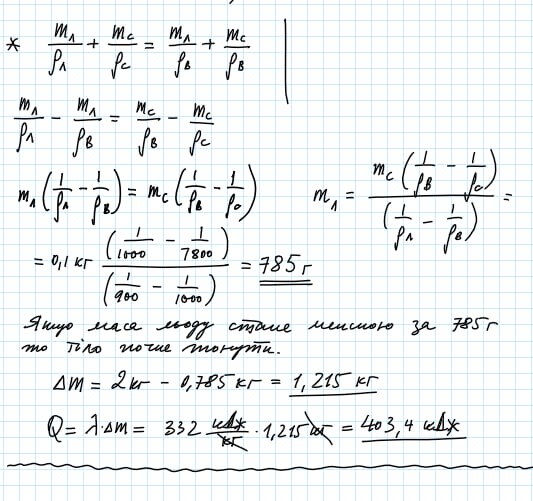 * mл/ρл + mс/ρс = mл/ρв + mс/ρв
mл/ρл − mл/ρв = mс/ρв − mс/ρс
mл(1/ρл − 1/ρв) = mс(1/ρв − 1/ρс)
mл = mс(1/ρв − 1/ρс)/(1/ρл − 1/ρв) =
= 0,1 кг (1/1000 − 1/7800)/(1/900 − 1/1000) = 785 г
Якщо маса льоду стане меншою за 785 г
то тіло почне тонути.
Δm = 2кг − 0,785 кг = 1,215 кг
Q = λ·Δm = 332 кДж/кг · 1,215 кг = 403,4 кДж